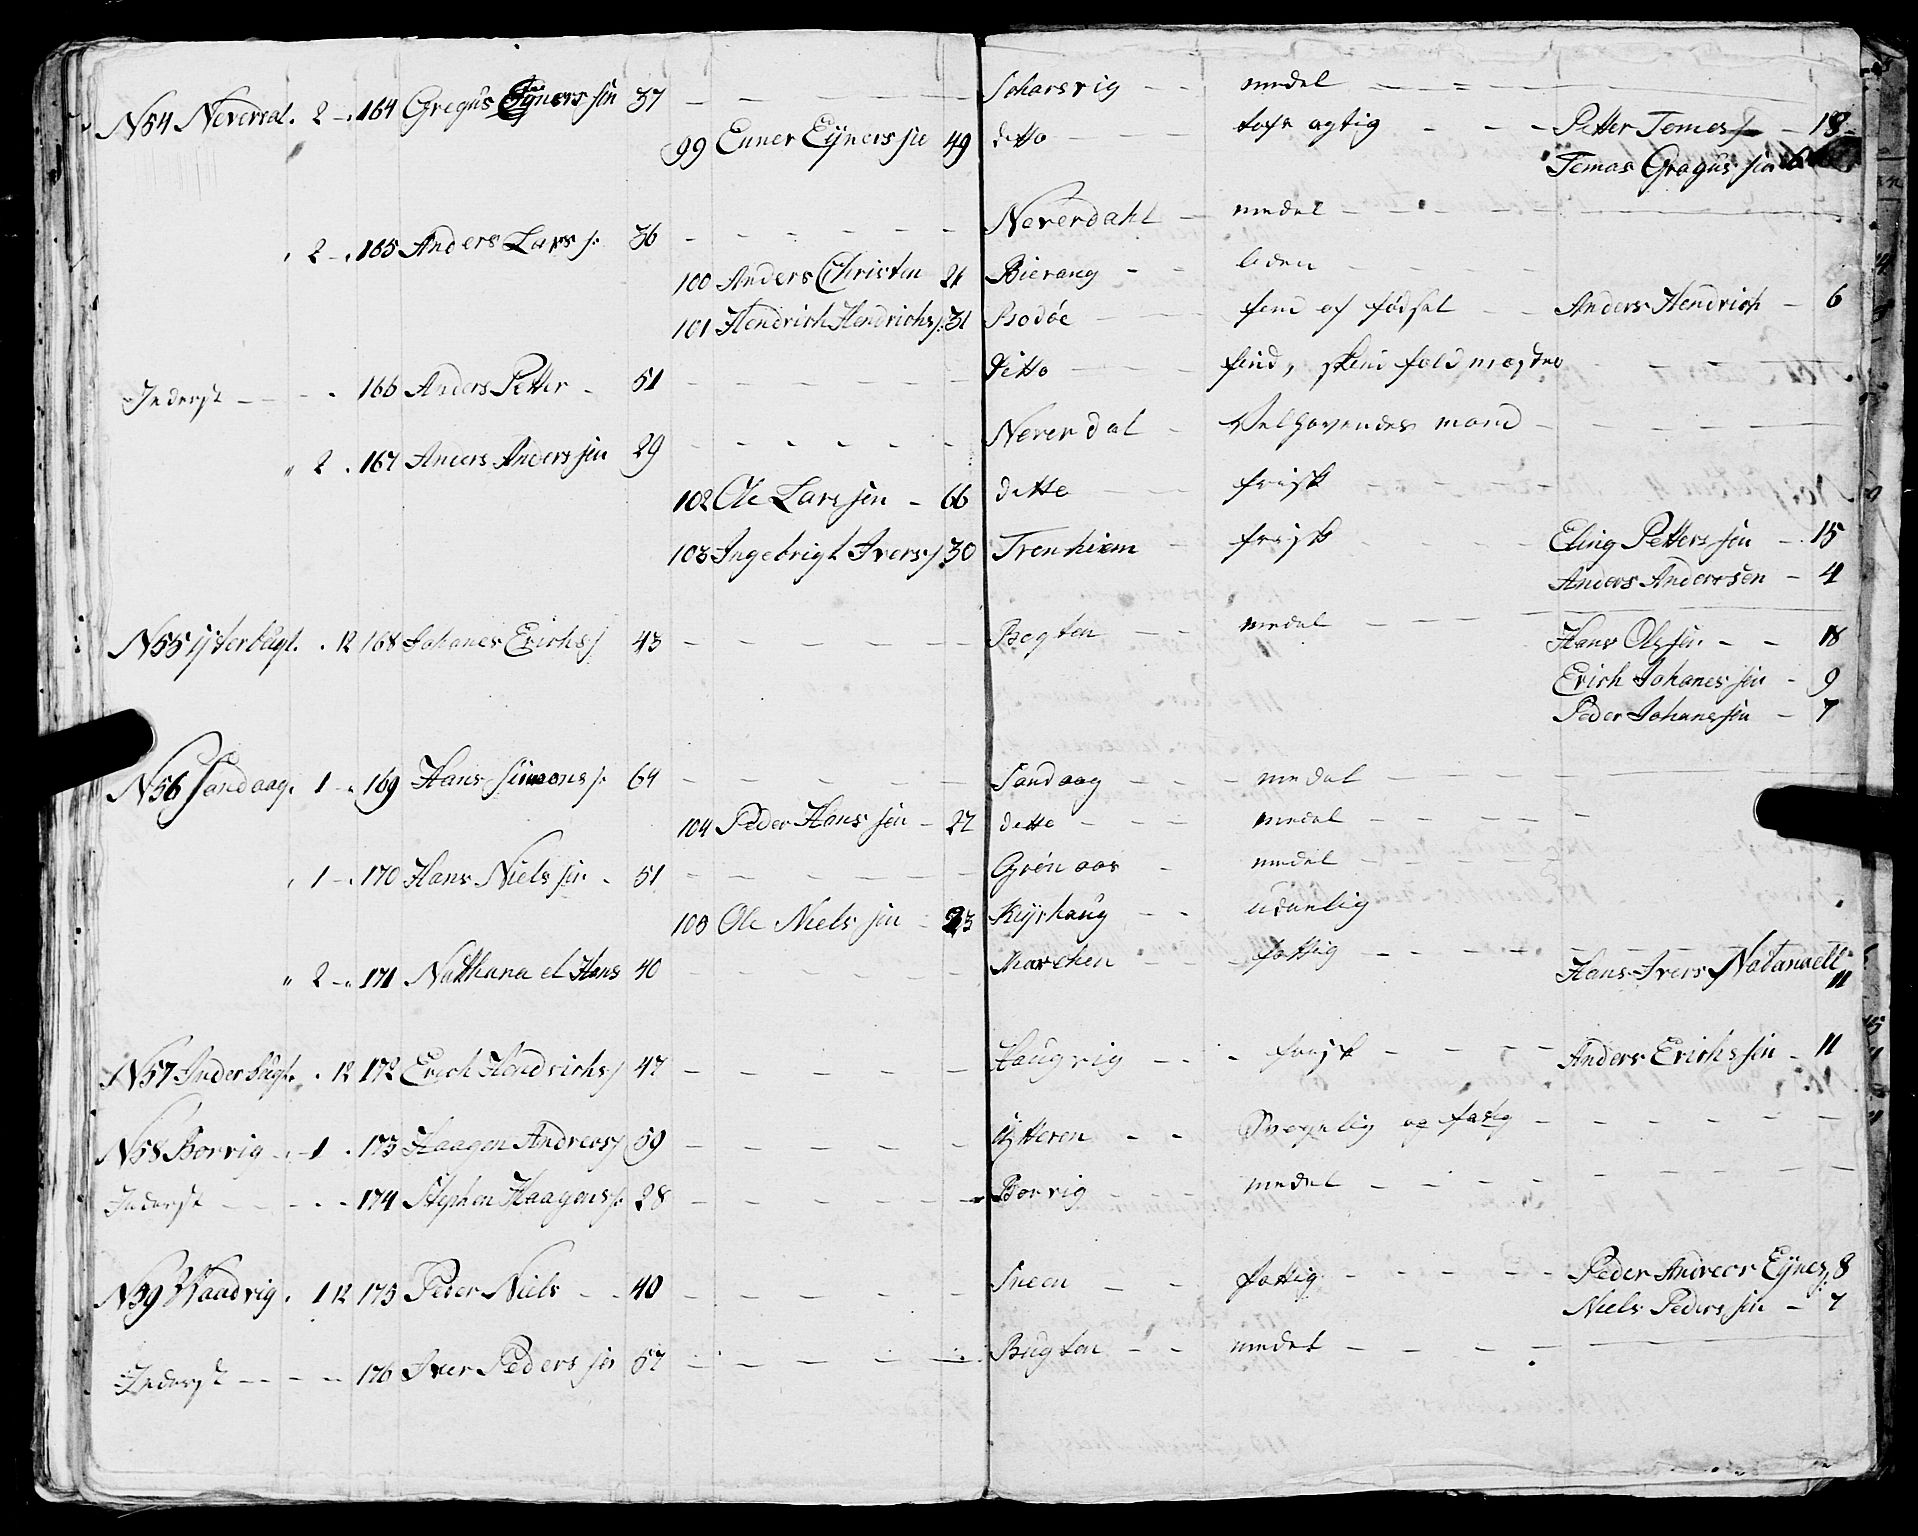 N54 Neverdal. 2 - . 164 Gregus Eÿners sen 37 - - - - - - Joharsvig - - medel - - - -
99 Enner Eÿners sen 49 ditto - - - - Petter Tomes - 18
Tomas Gragus sen
2 - . 165 Anders Lars s: 36 - - - - - - Neverdahl - medel - - - -
100 Anders Christen 21 Bierang - - liden - - -
101 Hendrich Hendrichs s: 31 Bodöe - - - find af födsel - - Anders Hendrich - 6
Inderst - - - . 166 Anders Petter - 51 - - - - - - ditto - - - find,
2 . 167 Anders Anders sen 29 - - - - - - Neverdal - Velhavendes mand - - - -
102 Ole Lars sen - 66 ditte - - - frisk - - -
103 Ingebrigt Ivers s 30 Tronhiem - frisk - - - - Eling Petters sen - 15
Anders Andersen - 4
N55 ÿterbugt. . 12 168 Johanes Erichs s 43 - - - - - - Bogten - - medel - - - Hans Ols sen - - 18
Erich Johanes sen - 9
Peder Johanes sen - 7
N56 Sandaag. 1 - . 169 Hans Simons s: 64 - - - - - Sandaag - - - medel - - -
104 Peder Hans sen - 27 ditto - - - medel - - - - -
1 - . 170 Hans Niels sen . 51 - - - - - - Grönaas - medel - - - -
103 Ole Niels sen - 23 Kÿrhaug - - udanlig
2 - . 171 Nathana el Hans 40 - - - - - - - - - fattig - - - - Hans Ivers Natanaell
11
N57 Inderbugt. . 12 172 Erich Hendrichs s 47 - - - - - - Haugvig - - - frisk - - - - Anders Erichs sen - 11
N58 Borvig - . - 1 . 173 Haagen Andreas s 59 - - - - - - Ÿtteren - - Svagelig og fatig - - - - -
Inderst - - - . - 174 Stephen Haagens s: 28 - - - - - - Borvig - - - medel - - - - -
N59 Vaadvig . 1 12 175 Peder Niels - - 40 - - - - - - Sneen - - fattig - - - - - Peder Andreas Eÿnes s 8
Niels Peders sen - 7
Inderst - - - - 176 Iver Peders sen 57 - - - - - - Bugten - - medel - - - - -